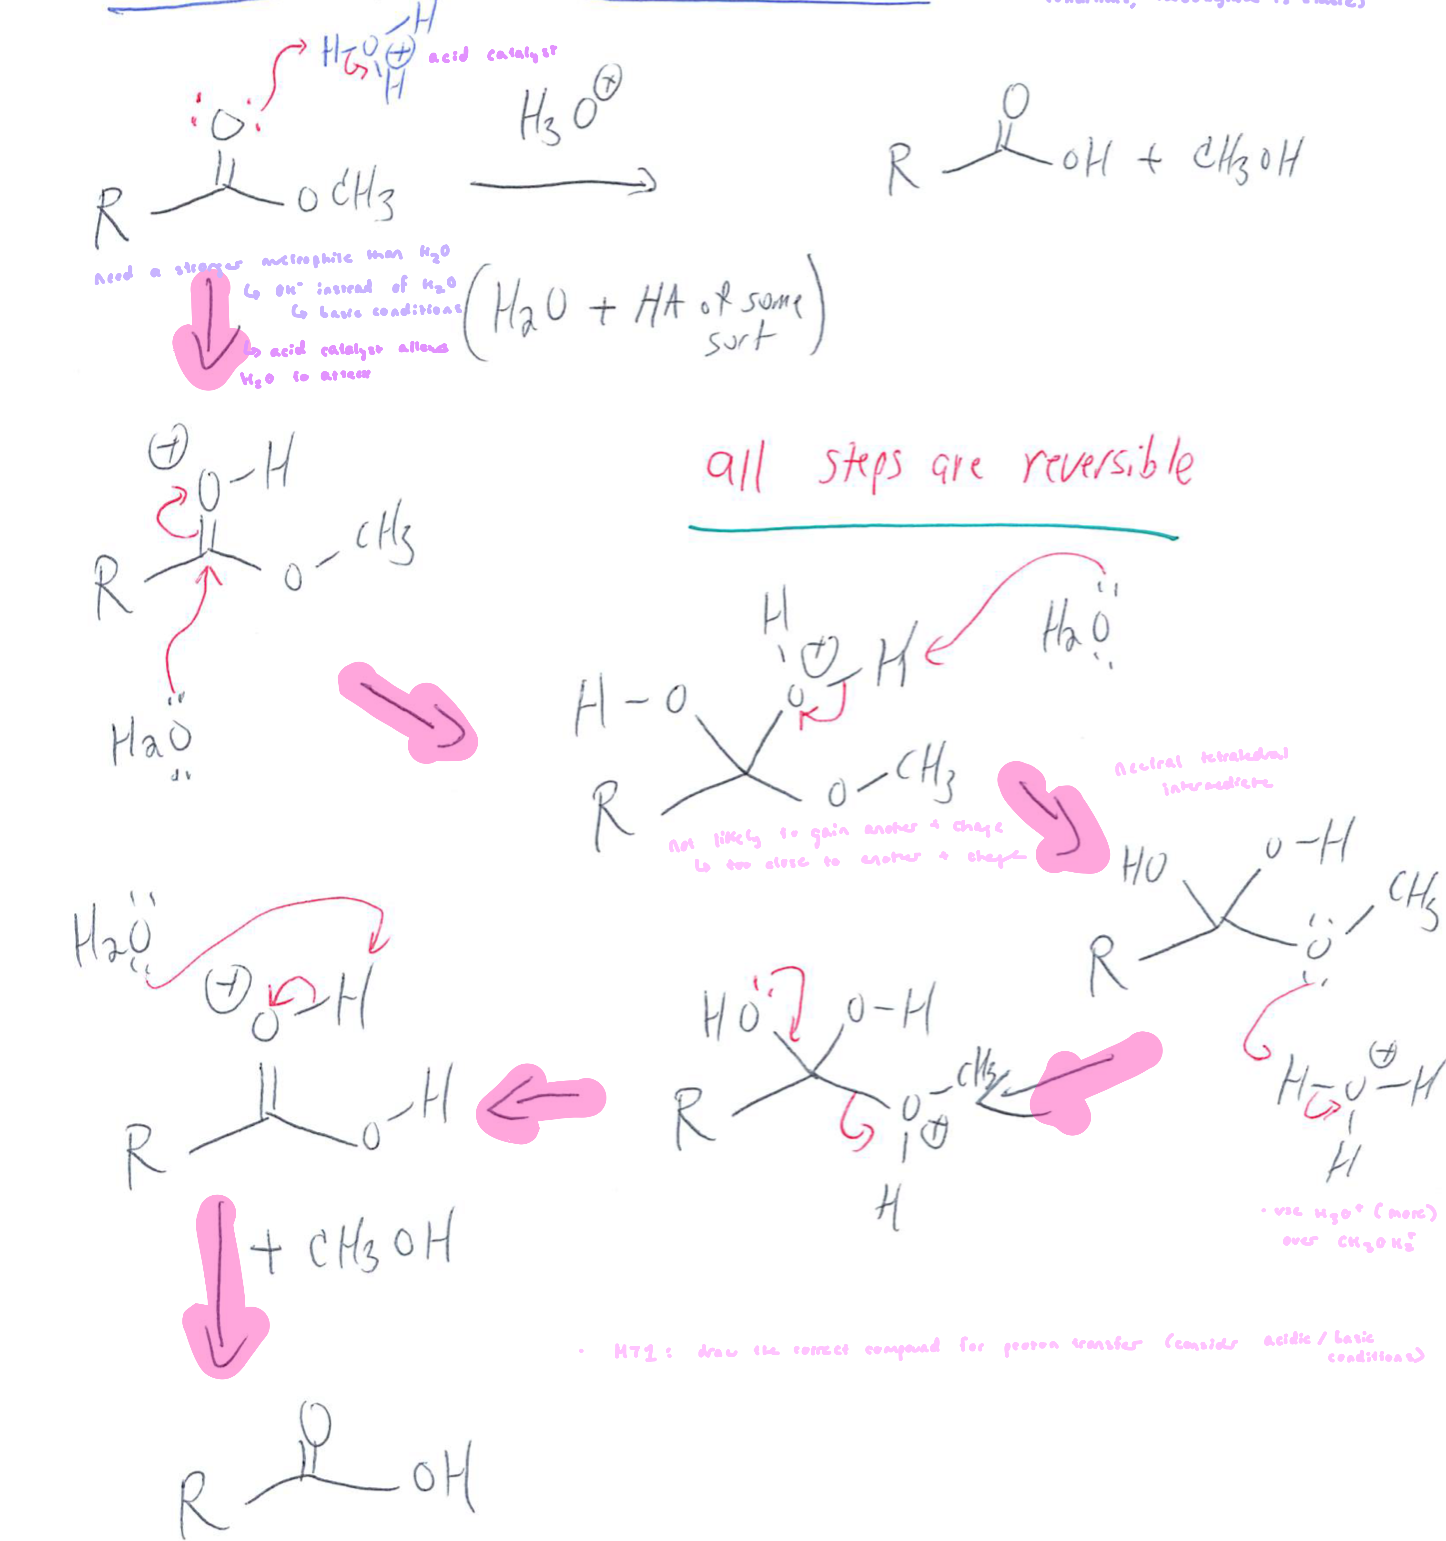 H
H-O ⊕ acid catalyst
H
H₃O⊕
:O:
R OCH₃
O
R OH + CH₃OH
need a stronger nucleophile than H₂O
↳ OH⁻ instead of H₂O
↳ basic conditions
↳ acid catalyst allows
H₂O to attack
(H₂O + HA of some
sort)
⊕
O-H
R O-CH₃
H₂O
all steps are reversible
H₂O
H
⊕
H-O O-H
R O-CH₃
not likely to gain another + charge
↳ too close to another + charge
Neutral tetrahedral
intermediate
HO O-H
R O-CH₃
⊕
H-O-H
H
• use H₃O⁺ (more)
over CH₃OH₂⁺
HO O-H
R O-CH₃
⊕
H
H₂O
⊕
O-H
R O-H
+ CH₃OH
• MT1: draw the correct compound for proton transfer (consider acidic/basic
conditions)
O
R OH